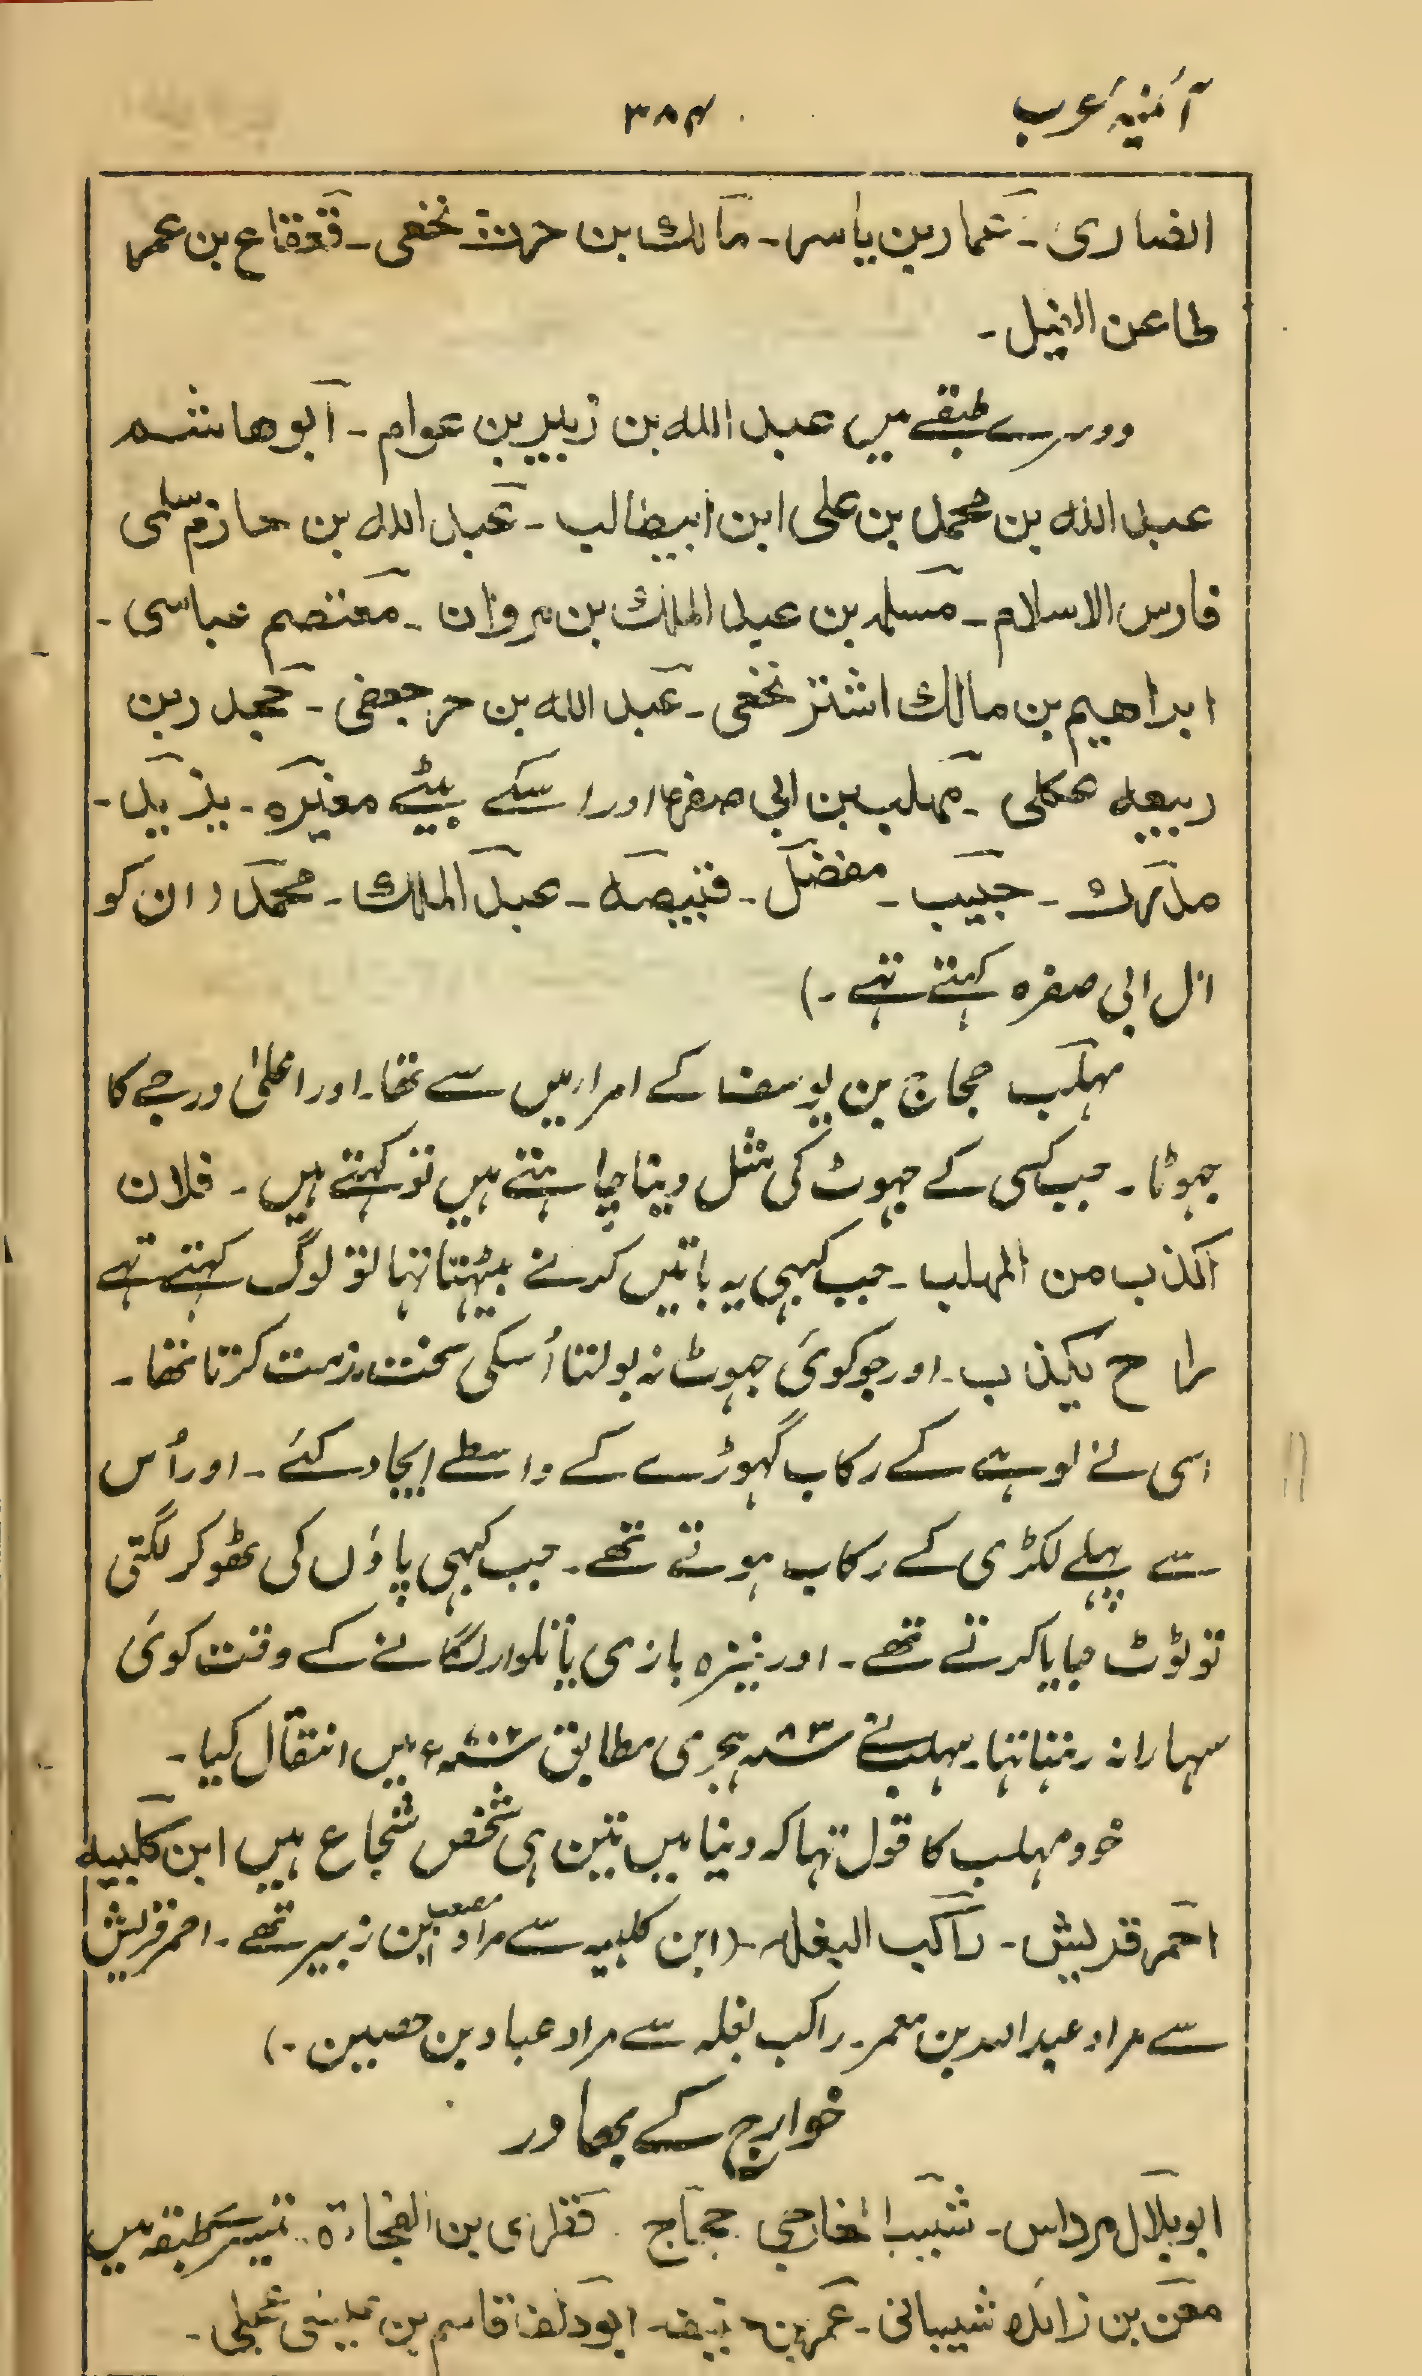 آئنیہٴ عرب
۳۸۴
انصاری ۔ عمار بن یاسر ۔ مالک بن حرث نخعی ۔ قعقاع بن عمر
طاعن الفیل ۔
دوسرے طبقے میں عبد اللہ بن زبیر بن عوام ۔ ابو ھاشم
عبد اللہ بن محمد بن علی ابن ابیطالب ۔ عبد اللہ بن حازم سلمی
فارس الاسلام ۔ مسلمہ بن عبد الملک بن مروان ۔ معتصم عباسی ۔
ابراھیم بن مالک اشتر نخعی ۔ عبد اللہ بن حر جعفی ۔ جحدر بن
ربیعہ عکلی ۔ مہلب بن ابی صفرہ اور اسکے بیٹے مغیرہ ۔ یزید ۔
مدرک ۔ حبیب ۔ مفضل ۔ قبیصہ ۔ عبد الملک ۔ محمد ( ان کو
ال ابی صفرہ کہتے تہے ۔)
مہلب حجاج بن یوسف کے امرا میں سے تھا ۔ اور اعلیٰ درجے کا
جہوٹا ۔ جب کسی کے جہوٹ کی مثل دینا چاہتے ہیں تو کہتے ہیں ۔ فلان
اکذب من المہلب ۔ جب کبہی یہ باتیں کرنے بیٹہتا تہا تو لوگ کہتے تہے
راح یکذب ۔ اور جو کوئی جہوٹ نہ بولتا اُسکی سخت مذمت کرتا تھا ۔
اسی نے لوہے کے رکاب گہوڑے کے واسطے ایجاد کئے ۔ اور اُس
سے پہلے لکڑی کے رکاب ہوتے تھے ۔ جب کبہی پاؤں کی ٹھوکر لگتی
تو ٹوٹ جایا کرتے تھے ۔ اور نیزہ بازی یا تلوار لگانے کے وقت کوئی
سہارا نہ رہتا تہا ۔ مہلب نے ۸۳ سنہ ہجری مطابق ۷۰۲ سنہ ء میں انتقال کیا ۔
خود مہلب کا قول تہا کہ دنیا میں تین ہی شخص شجاع ہیں ابن کلبیہ
احمر قریش ۔ راکب البغلہ ۔ (ابن کلبیہ سے مراد مصعب بن زبیر تھے ۔ احمر قریش
سے مراد عبد اللہ بن معمر ۔ راکب بغلہ سے مراد عباد بن حصین ۔)
خوارج کے بھادر
ابو بلال مرداس ۔ شبیب الخارجی . حجاج . قطری بن الفجاءۃ . تیسرے طبقہ میں
معن بن زائدہ شیبانی ۔ عمر بن حنیف ۔ ابو دلف قاسم بن عیسٰی عجلی ۔